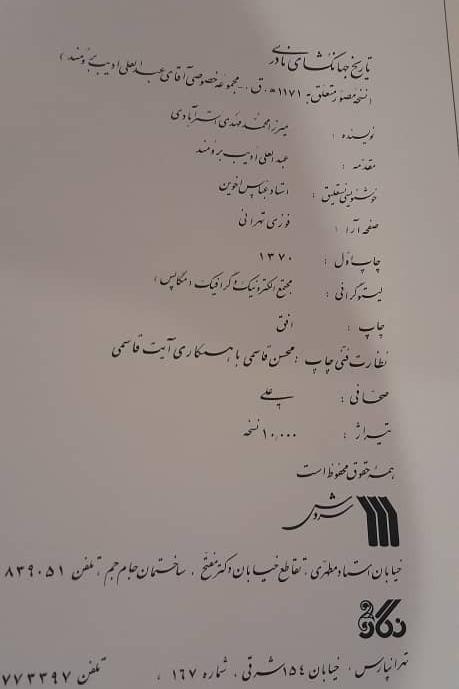 تاریخ جهانگشای نادری
(نسخهٔ مصور متعلق به ۱۱۷۱ ه.ق. - مجموعه خصوصی آقای عبدالعلی ادیب برومند)
نویسنده : میرزا محمد مهدی استرآبادی
مقدمه : عبدالعلی ادیب برومند
خوشنویسی نستعلیق : استاد عباس اخوین
صفحه آرا : فوزی تهرانی
چاپ اول : ۱۳۷۰
لیتوگرافی : مجتمع الکترونیک و گرافیک (مگاپس)
چاپ : افق
نظارت فنی چاپ : محسن قاسمی با همکاری آیت قاسمی
صحافی : علی
تیراژ : ۱۰,۰۰۰ نسخه
همه حقوق محفوظ است
سروش
خیابان استاد مطهری، تقاطع خیابان دکتر مفتح، ساختمان جام جم، تلفن ۸۳۹۰۵۱
نگار
تهرانپارس، خیابان ۱۵۴ شرقی، شماره ۱۶۷، تلفن ۷۷۳۳۹۷